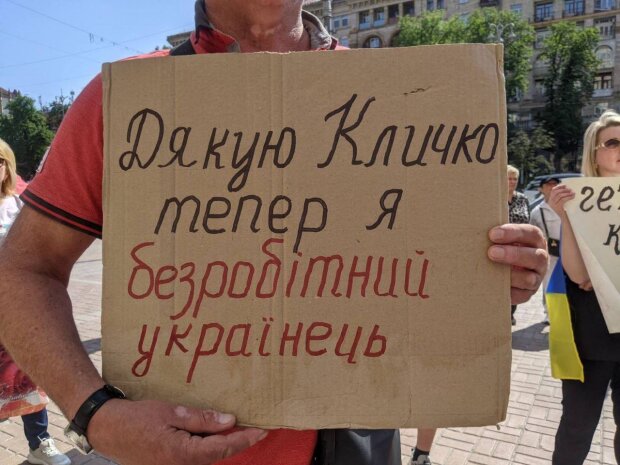 Дякую Кличко
тепер я
безробітний
українець
ге
к